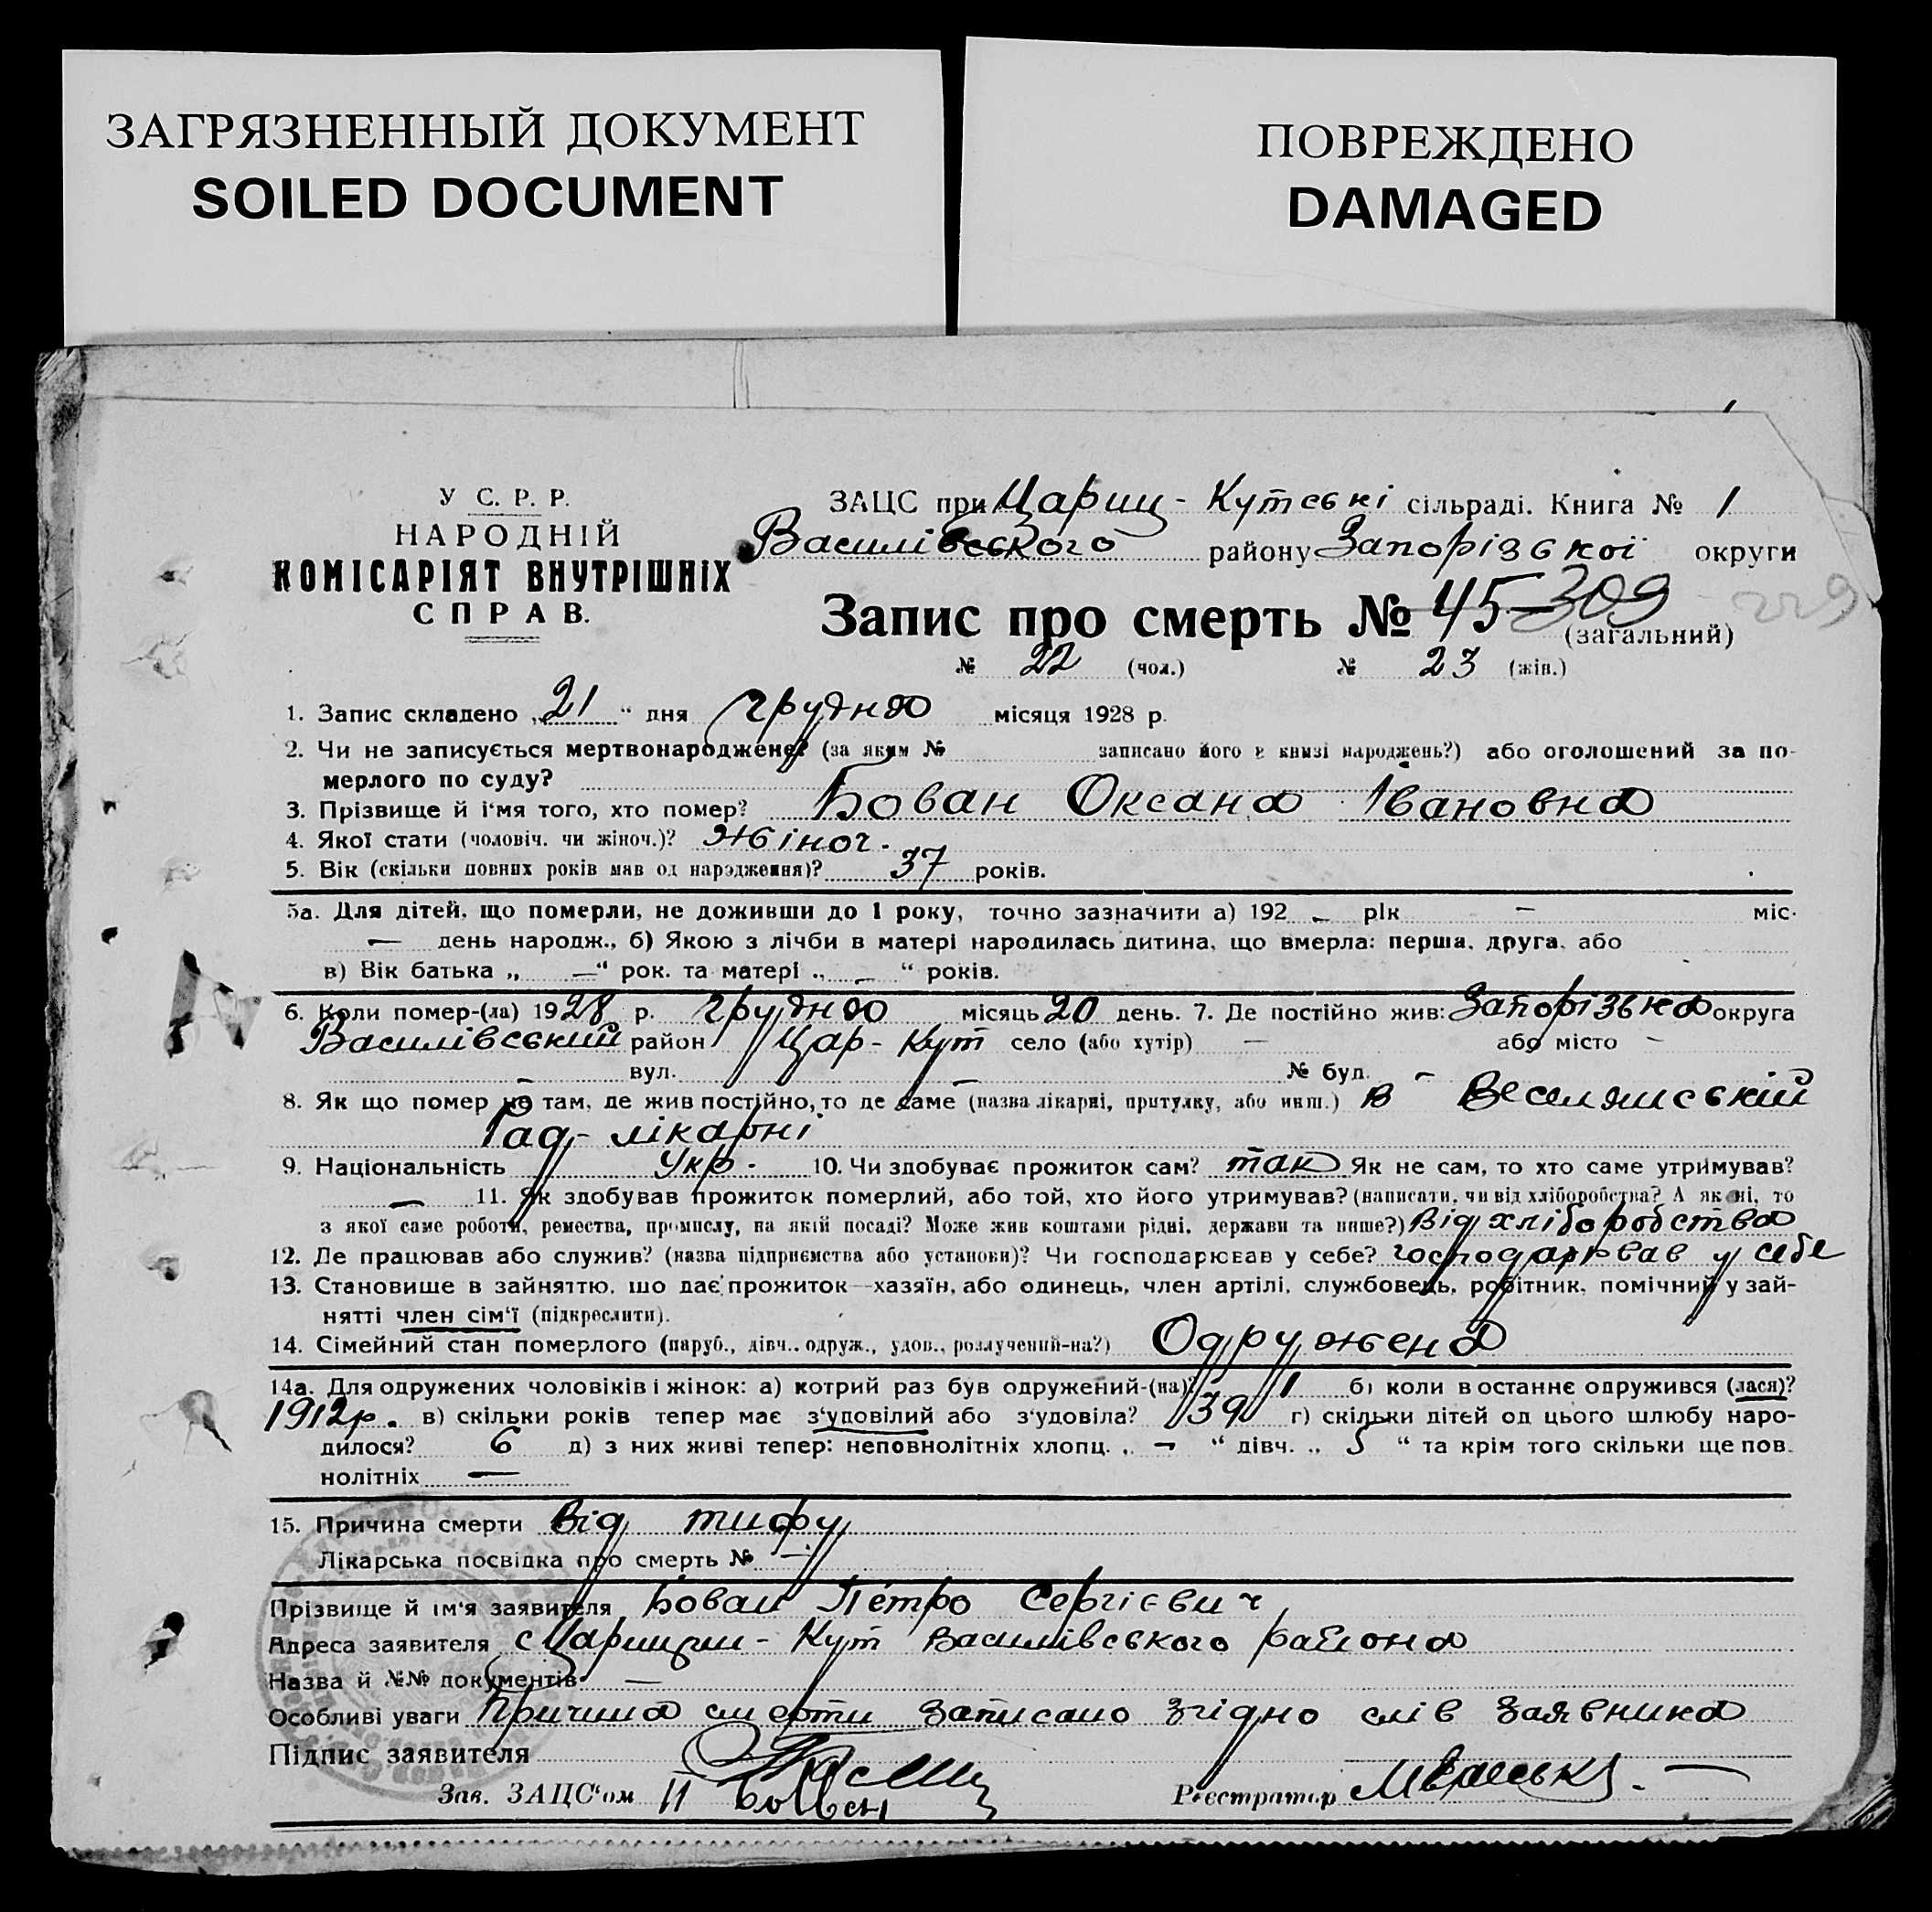 ЗАГРЯЗНЕННЫЙ ДОКУМЕНТ
SOILED DOCUMENT
ПОВРЕЖДЕНО
DAMAGED
У С. Р. Р.
НАРОДНІЙ
КОМІСАРІЯТ ВНУТРІШНІХ
СПРАВ.
ЗАЦС при Цариц - Кутські сільраді. Книга № 1
Василівського району Запорізької округи
Запис про смерть № 45 309 229
(загальний)
№ 22 (чол.) № 23 (жін.)
1. Запис складено „21“ дня грудня місяця 1928 р.
2. Чи не записується мертвонароджене? (за яким № записано його в книзі народжень?) або оголошений за по-
мерлого по суду?
3. Прізвище й і'мя того, хто помер? Бован Оксана Івановна
4. Якої стати (чоловіч. чи жіноч.)? Жіноч.
5. Вік (скільки повних років мав од народження)? 37 років.
5а. Для дітей, що померли, не доживши до 1 року, точно зазначити а) 192 – рік – міс.
— день народж., б) Якою з лічби в матері народилась дитина, що вмерла: перша, друга, або
в) Вік батька „ —“ рок. та матері „ – “ років.
6. Коли помер-(ла) 1928 р. грудня місяць 20 день. 7. Де постійно жив: Запорізька округа
Василівський район Цар - Кут село (або хутір) — або місто –
– вул. – № буд. –
8. Як що помер не там, де жив постійно, то де саме (назва лікарні, притулку, або инш.) в Веселянській
Рад - лікарні
9. Національність Укр. 10. Чи здобуває прожиток сам? так Як не сам, то хто саме утримував?
— 11. Як здобував прожиток померлий, або той, хто його утримував? (написати, чи від хліборобства? А як ні, то
з якої саме роботи, ремества, промислу, на якій посаді? Може жив коштами рідні, держави та инше?) Від хліборобства
12. Де працював або служив? (назва підприємства або установи)? Чи господарював у себе? господарював у себе
13. Становище в зайняттю, що дає прожиток—хазяїн, або одинець, член артілі, службовець, робітник, помічний у зай-
нятті член сім'ї (підкреслити).
14. Сімейний стан померлого (паруб., дівч., одруж., удов., розлучений-на?) Одружена
14а. Для одружених чоловіків і жінок: а) котрий раз був одружений-(на)? 1 б) коли в останнє одружився (лася)?
1912р. в) скільки років тепер має з'удовілий або з'удовіла? 39 г) скільки дітей од цього шлюбу наро-
дилося? 6 д) з них живі тепер: неповнолітніх хлопц. „ – “ дівч. „ 5 “ та крім того скільки ще пов.
нолітніх —
15. Причина смерти Від тифу
Лікарська посвідка про смерть № —
Прізвище й ім'я заявителя Бован Петро Сергієвич
Адреса заявителя с Царицин - Кут Василівського района
Назва й №№ документів —
Особливі уваги Причина смерти записано згідно слів заявника
Підпис заявителя
Зав. ЗАЦС'ом
Реєстратор